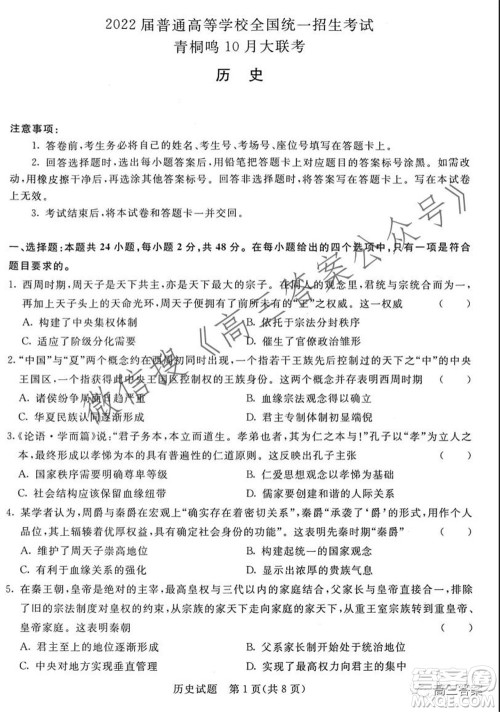 2022 届普通高等学校全国统一招生考试
青桐鸣 10 月大联考
历 史
注意事项:
1. 答卷前,考生务必将自己的姓名、考生号、考场号、座位号填写在答题卡上。
2. 回答选择题时,选出每小题答案后,用铅笔把答题卡对应题目的答案标号涂黑。如需改
动,用橡皮擦干净后,再选涂其他答案标号。回答非选择题时,将答案写在答题卡上。写在本试卷
上无效。
3. 考试结束后,将本试卷和答题卡一并交回。
一、选择题:本题共 24 小题,每小题 2 分,共 48 分。在每小题给出的四个选项中,只有一项是符合
题目要求的。
1. 西周时期,周天子是天下共主,亦是同姓诸侯国的大宗。在周人的观念里,君统与宗统万世一体,
再加上天子头上的天命光环,周王朝的政权便拥有了前所未有的“正”之权威。这一权威 ( )
A. 构建了中央集权体制 B. 依托于宗法分封秩序
C. 适应了阶级分化需要 D. 催生了君主专制制度
2. “中国”与“夏”两个概念约在西周前期出现,前者在概念上是指周王族先后控制过的天下之“中”的中央
王国区,后一个概念是把中央王国区控制权的王族包括在内。这表明西周时期 ( )
A. 诸侯纷争局面日趋严重 B. 血缘宗法走向现实政治
C. 华夏民族认同正逐渐形成 D. 君主专制体制初步形成
3. 《论语·学而篇》说:“君子务本,本立而道生。孝弟也者,其为仁之本与!”孔子以“孝悌”为人之
本,最终形成以孝悌为根本的具有普遍性的仁道原则。这反映出孔子主张 ( )
A. 国家秩序需要明确尊卑等级 B. 仁政统治理念以孝悌为基础
C. 社会结构应该保留血缘纽带 D. 依靠宗法关系恢复社会秩序
4. 某学者认为,周爵与秦爵之间“确实存在着密切关系”,秦爵的演变“承受了‘爵’的基本形式,
其上辐辏着优厚权益,具有强大激励功能,却打破了贵族对‘爵’的独占”。这表明先秦时期“爵”
( )
A. 维护了周天子崇高地位 B. 体现了周秦间制度差异
C. 有利于瓦解血缘政治 D. 实现了社会关系变革
5. 在秦王朝,皇帝是绝对的主宰,皇帝的家庭结构与三代以内的家庭结合,与庶民无异,这样排
除了旧的宗法制度对皇权的约束,从宗族的家天下走向个人的家天下,从重王室宗族走向重皇帝、
皇帝家庭。这说明秦朝 ( )
A. 君主至上的地位逐渐形成 B. 君权来源蒙上神秘面纱
C. 家国一体局面得以形成 D. 抛弃宗族传统巩固政治统治
历史试题 第 1 页(共 8 页)
微信搜《高三答案公众号》
高三答案